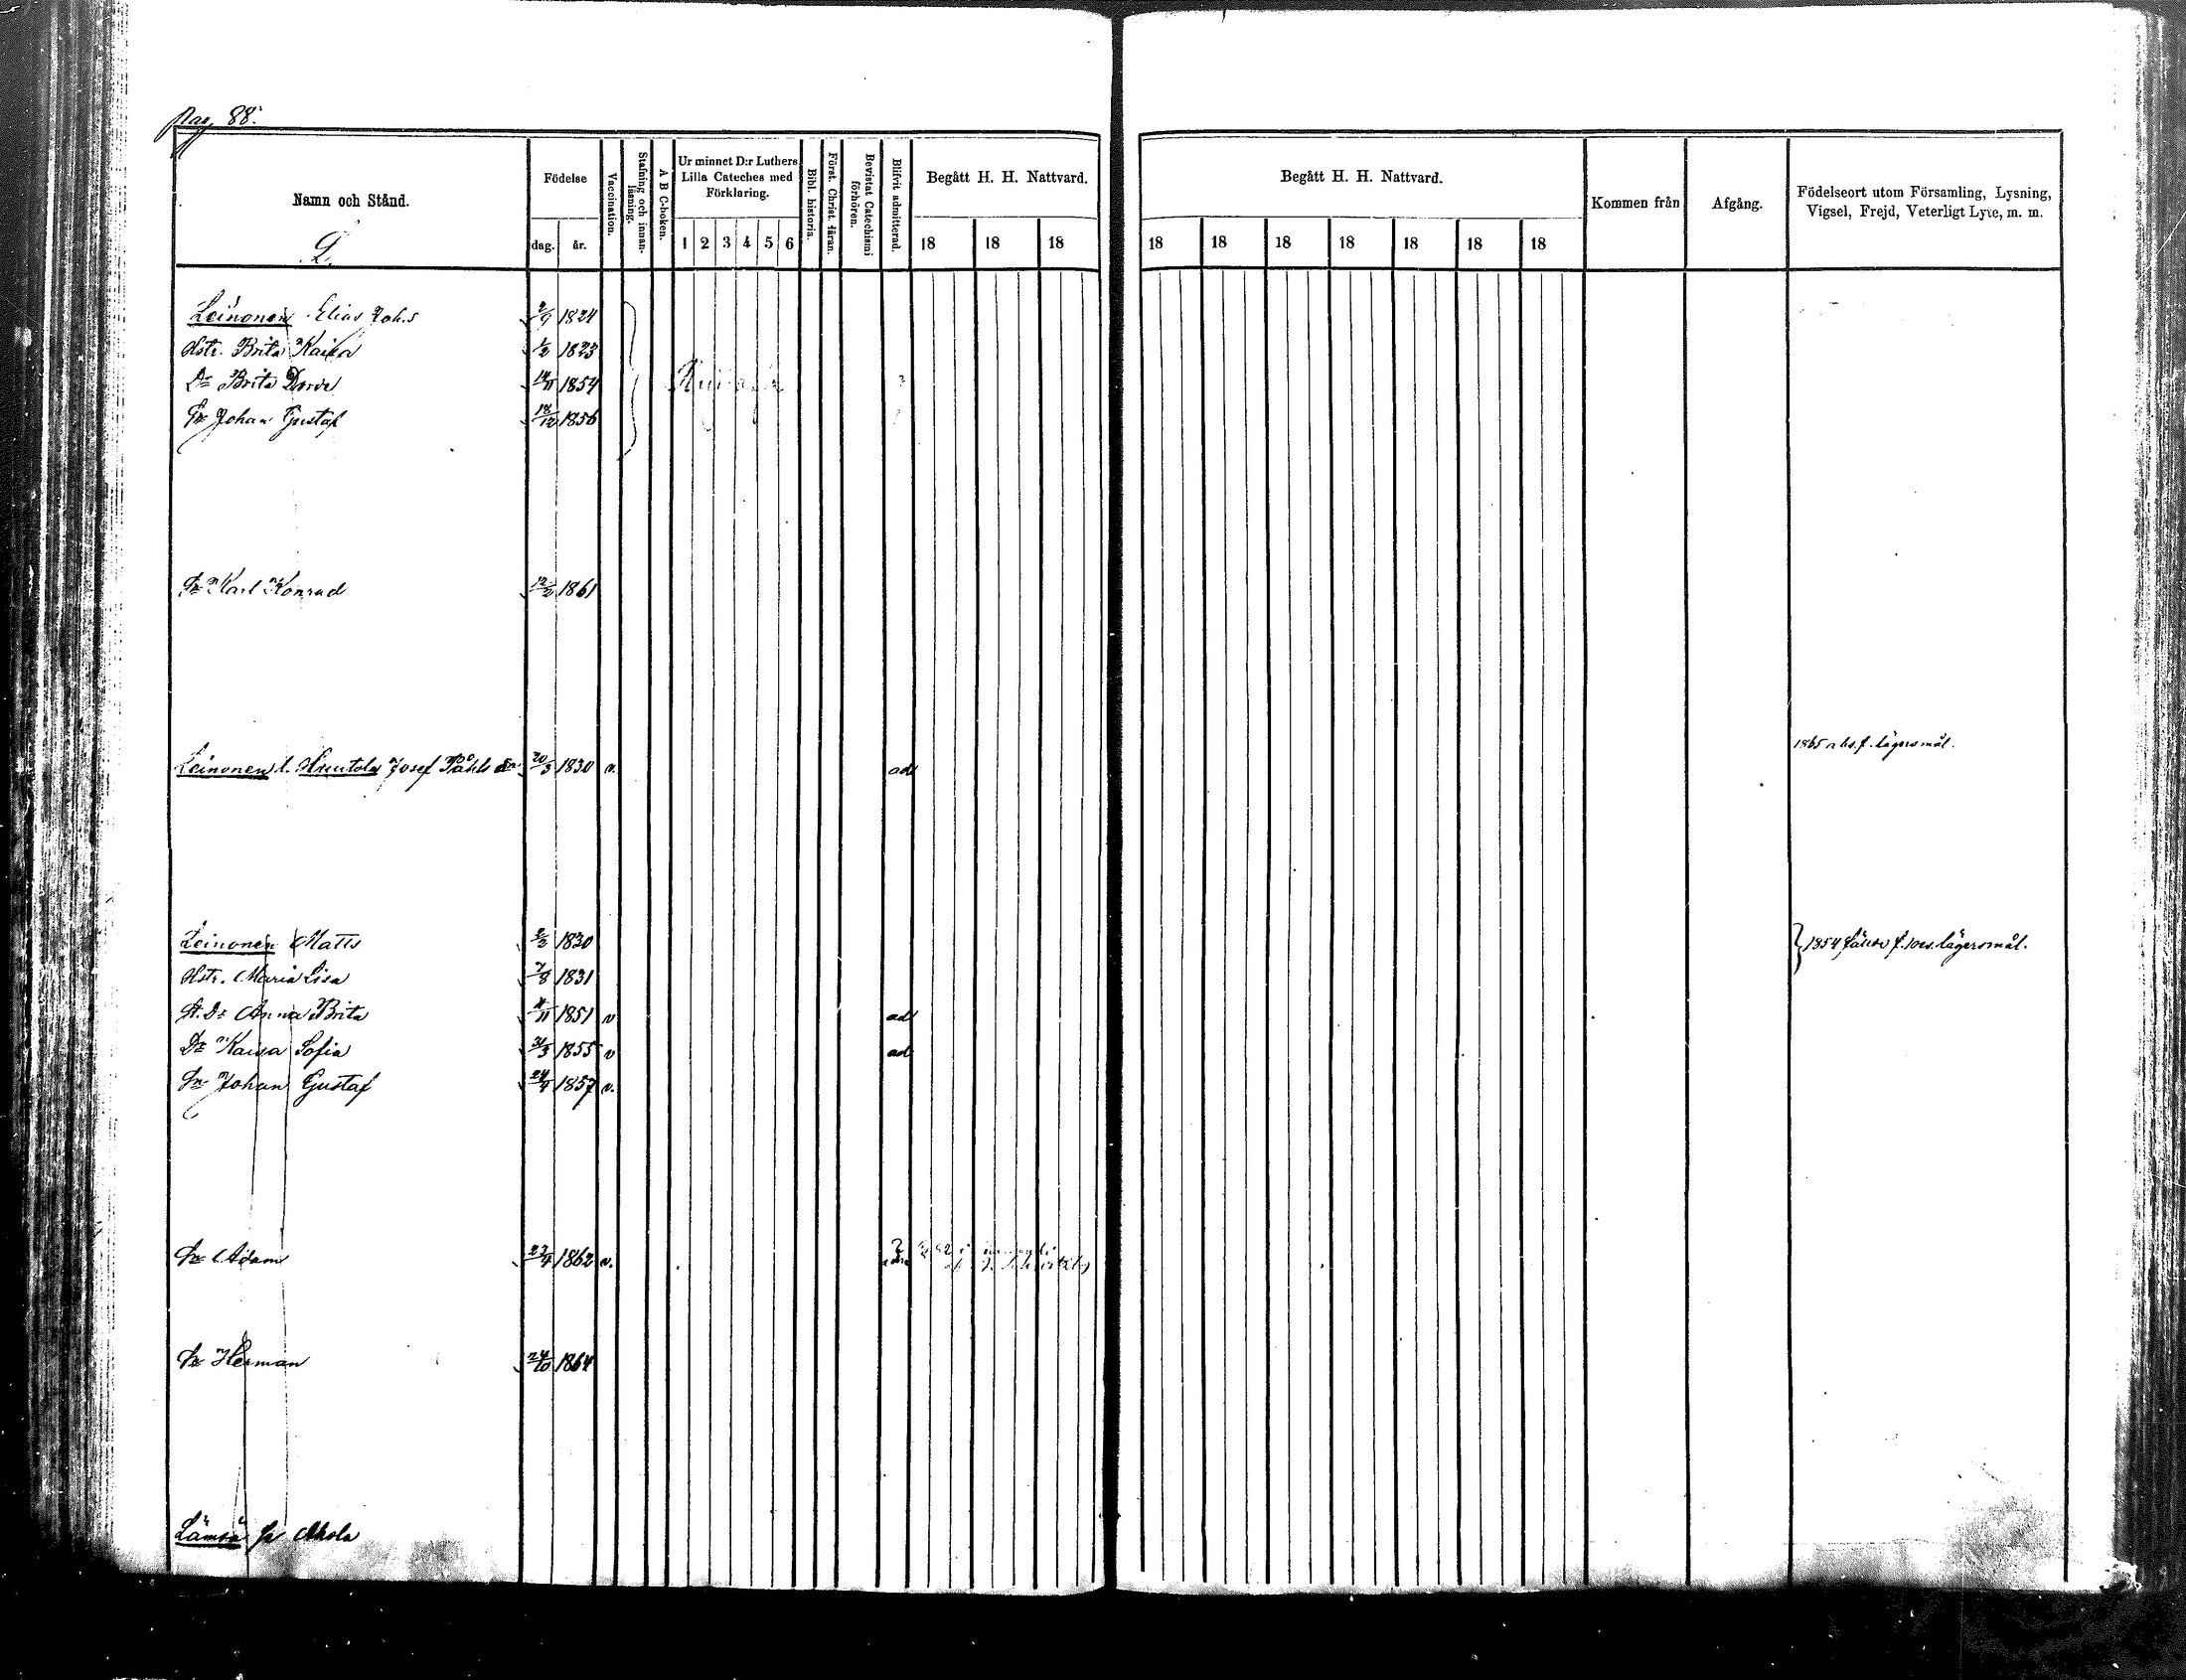 Pag. 88.
Namn och Stånd.
L.
Födelse
dag. år.
Vaccination.
Stafning och innanläsning.
A B C-boken.
Ur minnet D:r Luthers Lilla Cateches med Förklaring.
1 2 3 4 5 6
Bibl. historia.
Först. Christ. läran.
Bevistat Catechismi förhören.
Blifvit admitterad.
Begått H. H. Nattvard.
18 18 18
Begått H. H. Nattvard.
18 18 18 18 18 18 18
Kommen från
Afgång.
Födelseort utom Församling, Lysning, Vigsel, Frejd, Veterligt Lyte, m. m.
Leinonen Elias Joh.s 2/9 1824
Hstr. Brita Kaisa 1/2 1823
Dr Brita Dorde 14/11 1854
Sn Johan Gustaf 18/12 1856
Sn Karl Konrad 12/2 1861
1865 abs. f. lägersmål.
Leinonen l. Huutola Josef Påhls Sn 20/3 1830 v. ad
Leinonen Matts 2/3 1830 1854 f. lägersmål.
Hstr. Maria Lisa 7/8 1831
St. Dr Anna Brita 4/11 1851 v ad
Dr Kaisa Sofia 31/3 1855 v ad
Sn Johan Gustaf 24/4 1857 v.
Sn Adam 23/4 1862 v.
Sn Herman 24/10 1864
Lämsä